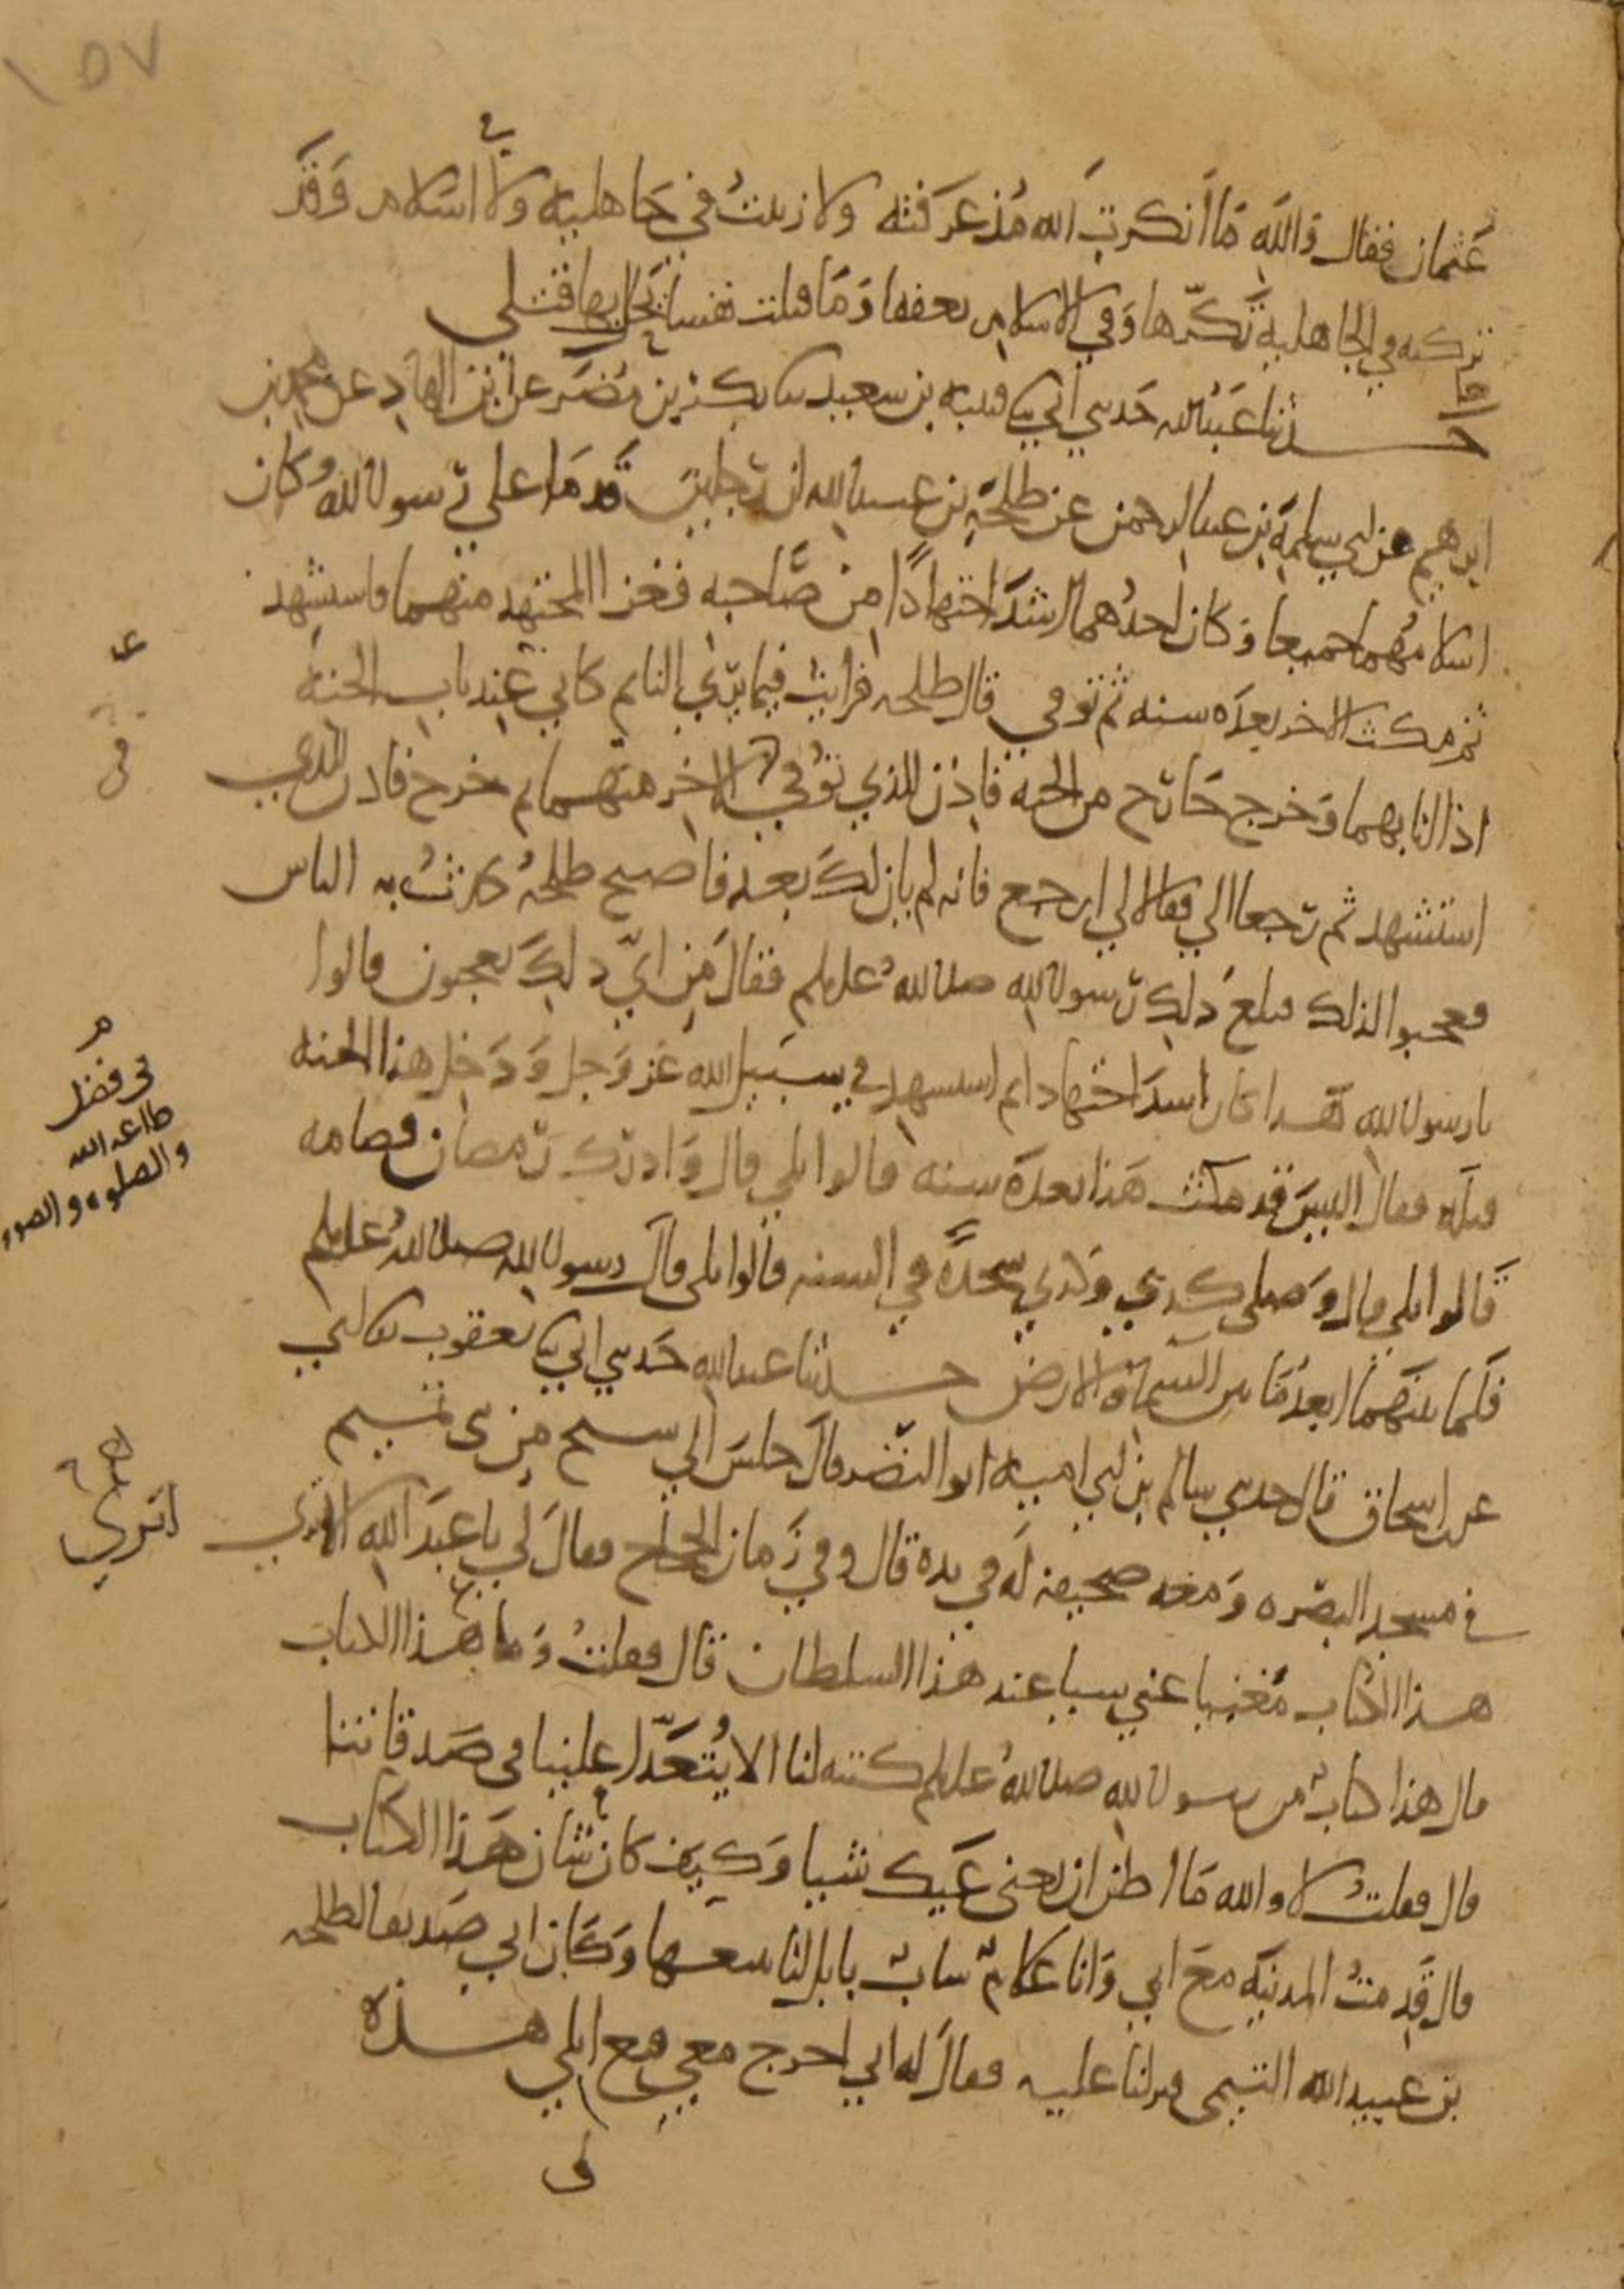 ١٥٧
عثمان فقال وَالله مَا أنكرت الله مُذ عرفته ولا زنيتُ في جَاهلية ولا في اسلام وَقد
تركته في الجاهلية تكرّها وَفي الاسلام تعففا وَمَا قتلت نفسا يحل بها قتلي
حدثنا عَبدُالله حَدثني أبي ثنا قتيبة بن سعيد ثنا بكر بن مُضَر عن ابن الهادِ عن محمد بن
ابرهيم عن ابي سلمة بن عبد الرحمن عن طلحَة بن عبيد الله ان رَجلين قَدمَا على رسول الله وكان
اسلامُهما جميعا وَكان احدُهما اشدَّ اجتهادًا من صَاحبه فغزا المجتهد منهما فاستشهد
ثم مكث الاخر بعدَه سنه ثم توفي قال طلحه فرايتُ فيما يرَى النايم كاني عند باب الجنة
اذا انا بهما وَخرج خَارج من الجنة فاذن للذي توُفي الاخر منهما ثم خرج فاذن للذي
استشهد ثم رَجعا الي فقالا لي ارجع فانه لم يان لك بعد فاصبح طلحةُ يحدثُ به الناس
فعجبوا لذلك فبلغ ذلك رَسول الله صلى اللهُ عليه وسلم فقالَ مِن ايّ ذلِكَ تعجبون قالوا
يا رسول الله هَذا كان اشدّ اجتهادا ثم استشهد في سَبيل الله عَز وَجل وَدَخل هذا الجنه
قبله فقال اليسَ قد مكث هَذا بعدَه سنه قالوا بلى قال وَادرك رَمضان فصامه
قَالوا بلى قال وَصلى كذي وَكذي سجدَةً في السنه قالوا بلى قالَ رسول الله صلى اللهُ عليه وسلم
فَلَما بينَهما ابعدُ مَا بين السَماءِ والارض حدثنا عبد الله حَدثني ابي ثنا يَعقوب ثنا ابي
عن ابن اسحاق قال حدثني سالم بن ابي امية ابو النضَر قالَ جلسَ الي شيخ مِن بني تميم
في مسجد البصَره وَمعه صحيفة لَه في يده قال وفي زَمان الحجاج فقالَ لي يا عبدَ الله الا ترى
هذا الكتاب مُغنيا عني شيا عند هذا السلطان قال فقلتُ وَما هذا الكتاب
قال هذا كتابٌ من رسول الله صلى اللهُ عليه وسلم كتبه لنا الا يُتعَدّا علينا في صَدقاتنا
قال فقلتُ لا والله مَا اظن ان يغني عَنك شيا وَكيف كان شان هَذا الكتاب
قال قَدِمتُ المدينَه معَ ابي وَانا غلامٌ شابٌ بابل لنا نبيعها وَكان ابي صَديقا لطلحه
بن عبيد الله التيمى فنزلنا عليه فقالَ له ابي اخرج معي فبع ابلي هذه
في فضل
طاعه الله
والصلوه والصوم
اترى